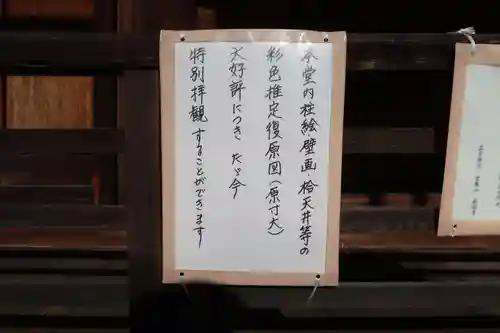 本堂内柱絵・壁画・格天井等の
彩色推定復原図(原寸大)
大好評につき ただ今
特別拝観することができます